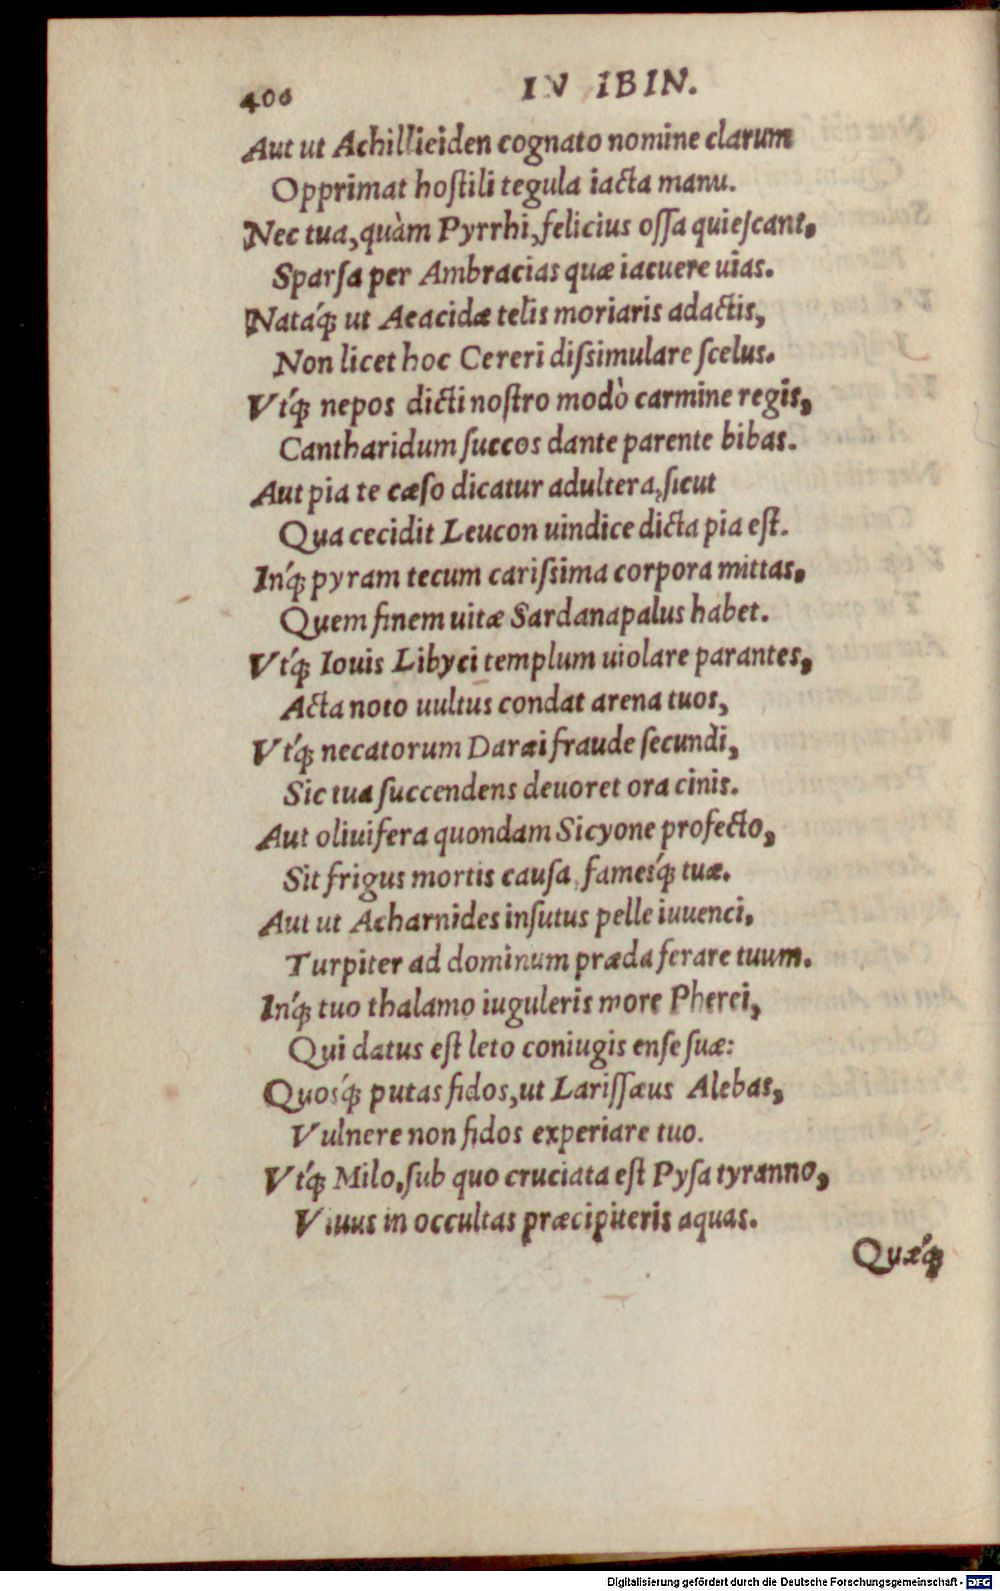 406 IN IBIN.
Aut ut Achillieiden cognato nomine clarum
Opprimat hoſtili tegula iacta manu.
Nec tua, quàm Pyrrhi, felicius oſſa quieſcant,
Sparſa per Ambracias quæ iacuere uias.
Natáq; ut Aeacidæ telis moriaris adactis,
Non licet hoc Cereri diſsimulare ſcelus.
Vtq́; nepos dicti noſtro modò carmine regis,
Cantharidum ſuccos dante parente bibas.
Aut pia te cæſo dicatur adultera, ſicut
Qua cecidit Leucon uindice dicta pia eſt.
Inq́; pyram tecum cariſsima corpora mittas,
Quem finem uitæ Sardanapalus habet.
Vtq́; Iouis Libyci templum uiolare parantes,
Acta noto uultus condat arena tuos,
Vtq́; necatorum Daræi fraude ſecundi,
Sic tua ſuccendens deuoret ora cinis.
Aut oliuifera quondam Sicyone profecto,
Sit frigus mortis cauſa, famesq́; tuæ.
Aut ut Acharnides inſutus pelle iuuenci,
Turpiter ad dominum præda ferare tuum.
Inq́; tuo thalamo iuguleris more Pherei,
Qui datus eſt leto coniugis enſe ſuæ:
Quosq́; putas fidos, ut Lariſſæus Alebas,
Vulnere non fidos experiare tuo.
Vtq́; Milo, ſub quo cruciata eſt Pyſa tyranno,
Viuus in occultas præcipiteris aquas.
Quæq́;
Digitalisierung gefördert durch die Deutsche Forschungsgemeinschaft - DFG